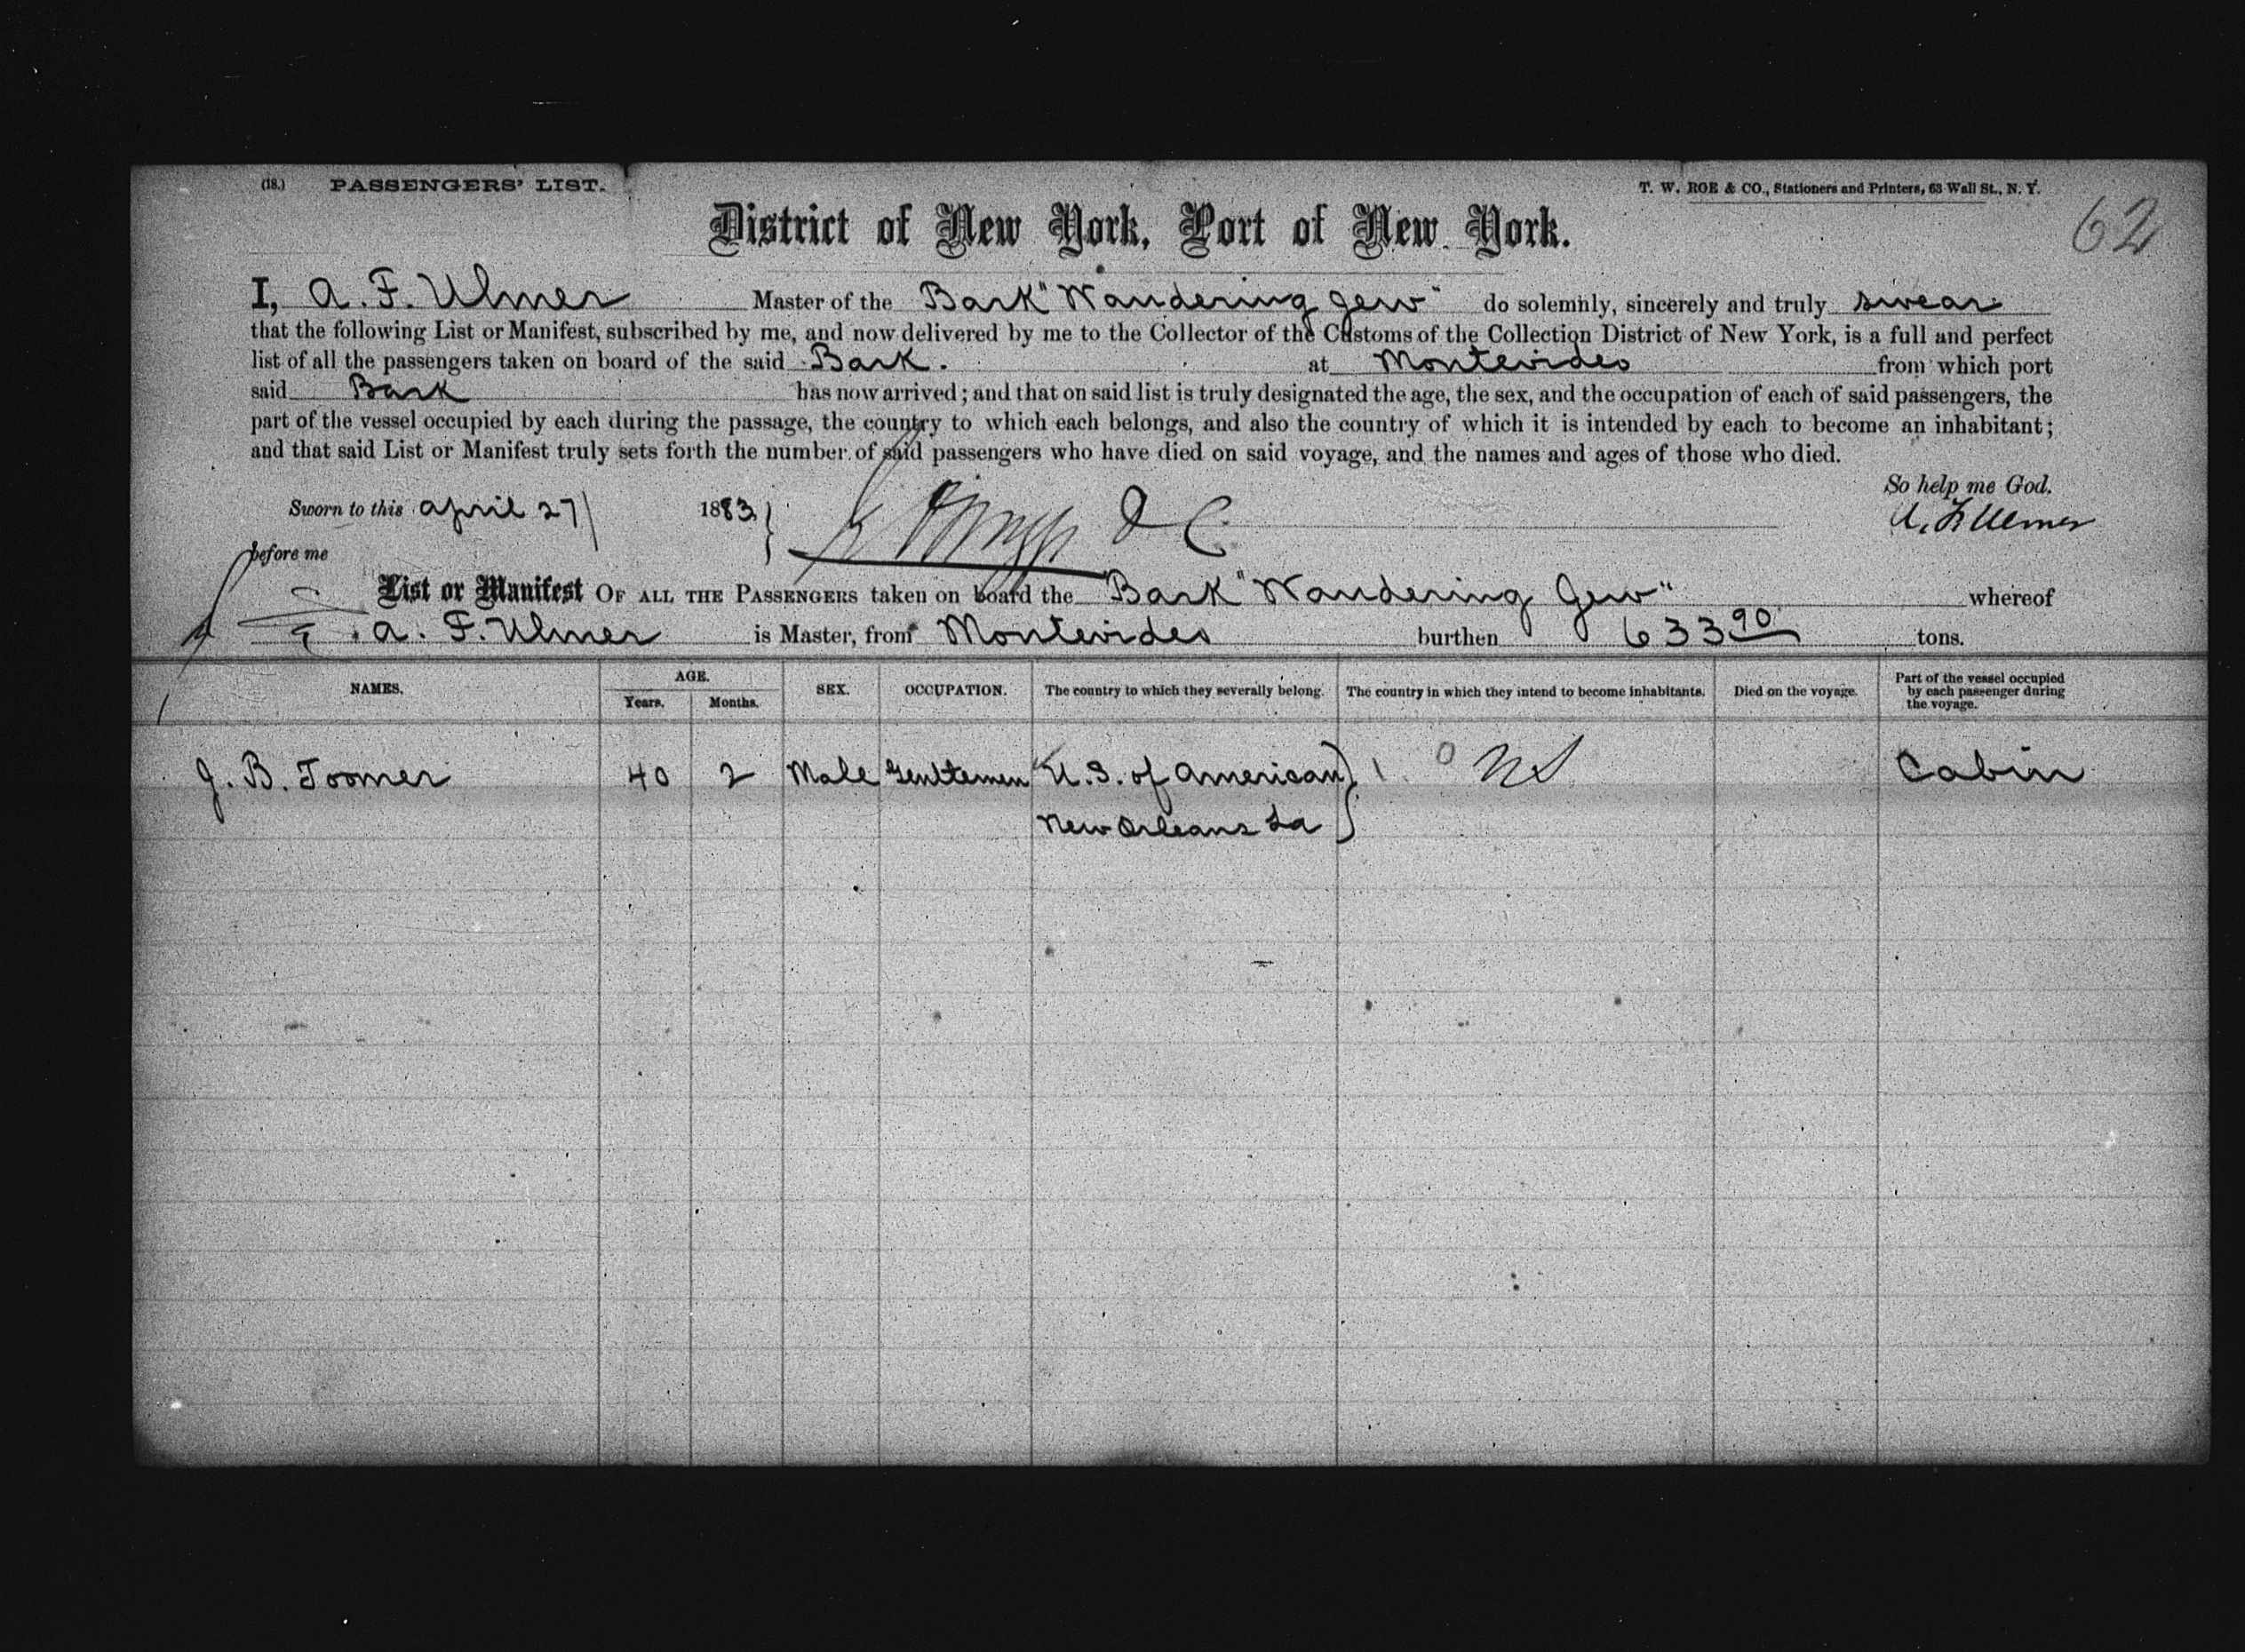 (18.) PASSENGERS' LIST.
T. W. ROE & CO., Stationers and Printers, 63 Wall St., N. Y.
62
District of New York, Port of New York.
I, A. F. Ulmer Master of the Bark "Wandering Jew" do solemnly, sincerely and truly swear
that the following List or Manifest, subscribed by me, and now delivered by me to the Collector of the Customs of the Collection District of New York, is a full and perfect
list of all the passengers taken on board of the said Bark. at Montevideo from which port
said Bark has now arrived; and that on said list is truly designated the age, the sex, and the occupation of each of said passengers, the
part of the vessel occupied by each during the passage, the country to which each belongs, and also the country of which it is intended by each to become an inhabitant;
and that said List or Manifest truly sets forth the number of said passengers who have died on said voyage, and the names and ages of those who died.
So help me God.
Sworn to this April 27 1883 A. F. Ulmer
before me
List or Manifest OF ALL THE PASSENGERS taken on board the Bark "Wandering Jew" whereof
A. F. Ulmer is Master, from Montevideo burthen 633 90 tons.
NAMES. AGE. Years. Months. SEX. OCCUPATION. The country to which they severally belong. The country in which they intend to become inhabitants. Died on the voyage. Part of the vessel occupied by each passenger during the voyage.
J. B. Toomer 40 2 Male Gentlemen U. S. of American US Cabin
New Orleans La